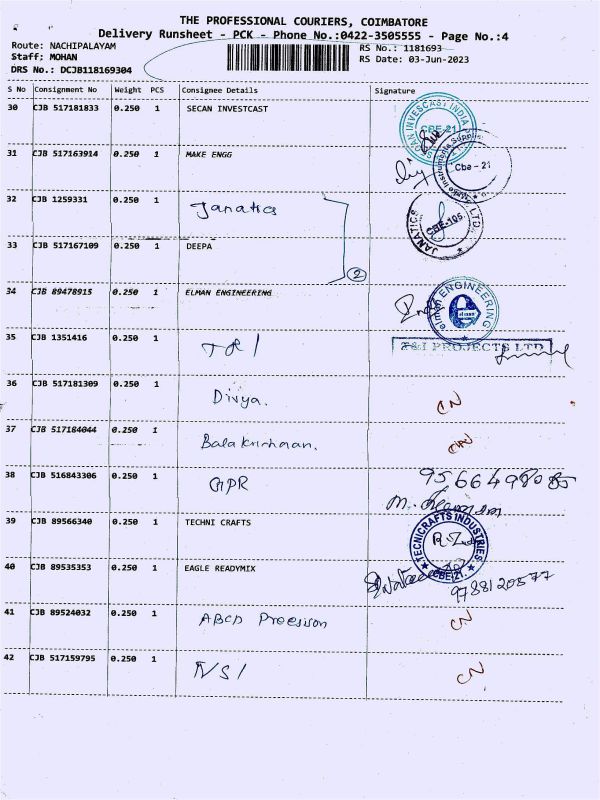 THE PROFESSIONAL COURIERS, COIMBATORE
Delivery Runsheet - PCK - Phone No.:0422-3505555 - Page No.:4
Route: NACHIPALAYAM
RS No.: 1181693
Staff: MOHAN
RS Date: 03-Jun-2023
DRS No.: DCJB118169304
S No Consignment No Weight PCS Consignee Details Signature
30 CJB 517181833 0.250 1 SECAN INVESTCAST
CBE-21
31 CJB 517163914 0.250 1 MAKE ENGG
Cbe - 21
32 CJB 1259331 0.250 1 Janatics
JANATICS LTD. CBE-105
33 CJB 517167109 0.250 1 DEEPA
2
34 CJB 89478915 0.250 1 ELMAN ENGINEERING
elman ENGINEERING
35 CJB 1351416 0.250 1 TRI
T&I PROJECTS LTD
36 CJB 517181309 0.250 1 Divya. CN
37 CJB 517184044 0.250 1 Balakrishnan. CN
38 CJB 516843306 0.250 1 GPR
39 CJB 89566340 0.250 1 TECHNI CRAFTS
TECNICRAFTS INDUSTRIES CBE-21.
40 CJB 89535353 0.250 1 EAGLE READYMIX
9788120577
41 CJB 89524032 0.250 1 ABCD Precision CN
42 CJB 517159795 0.250 1 NSI CN